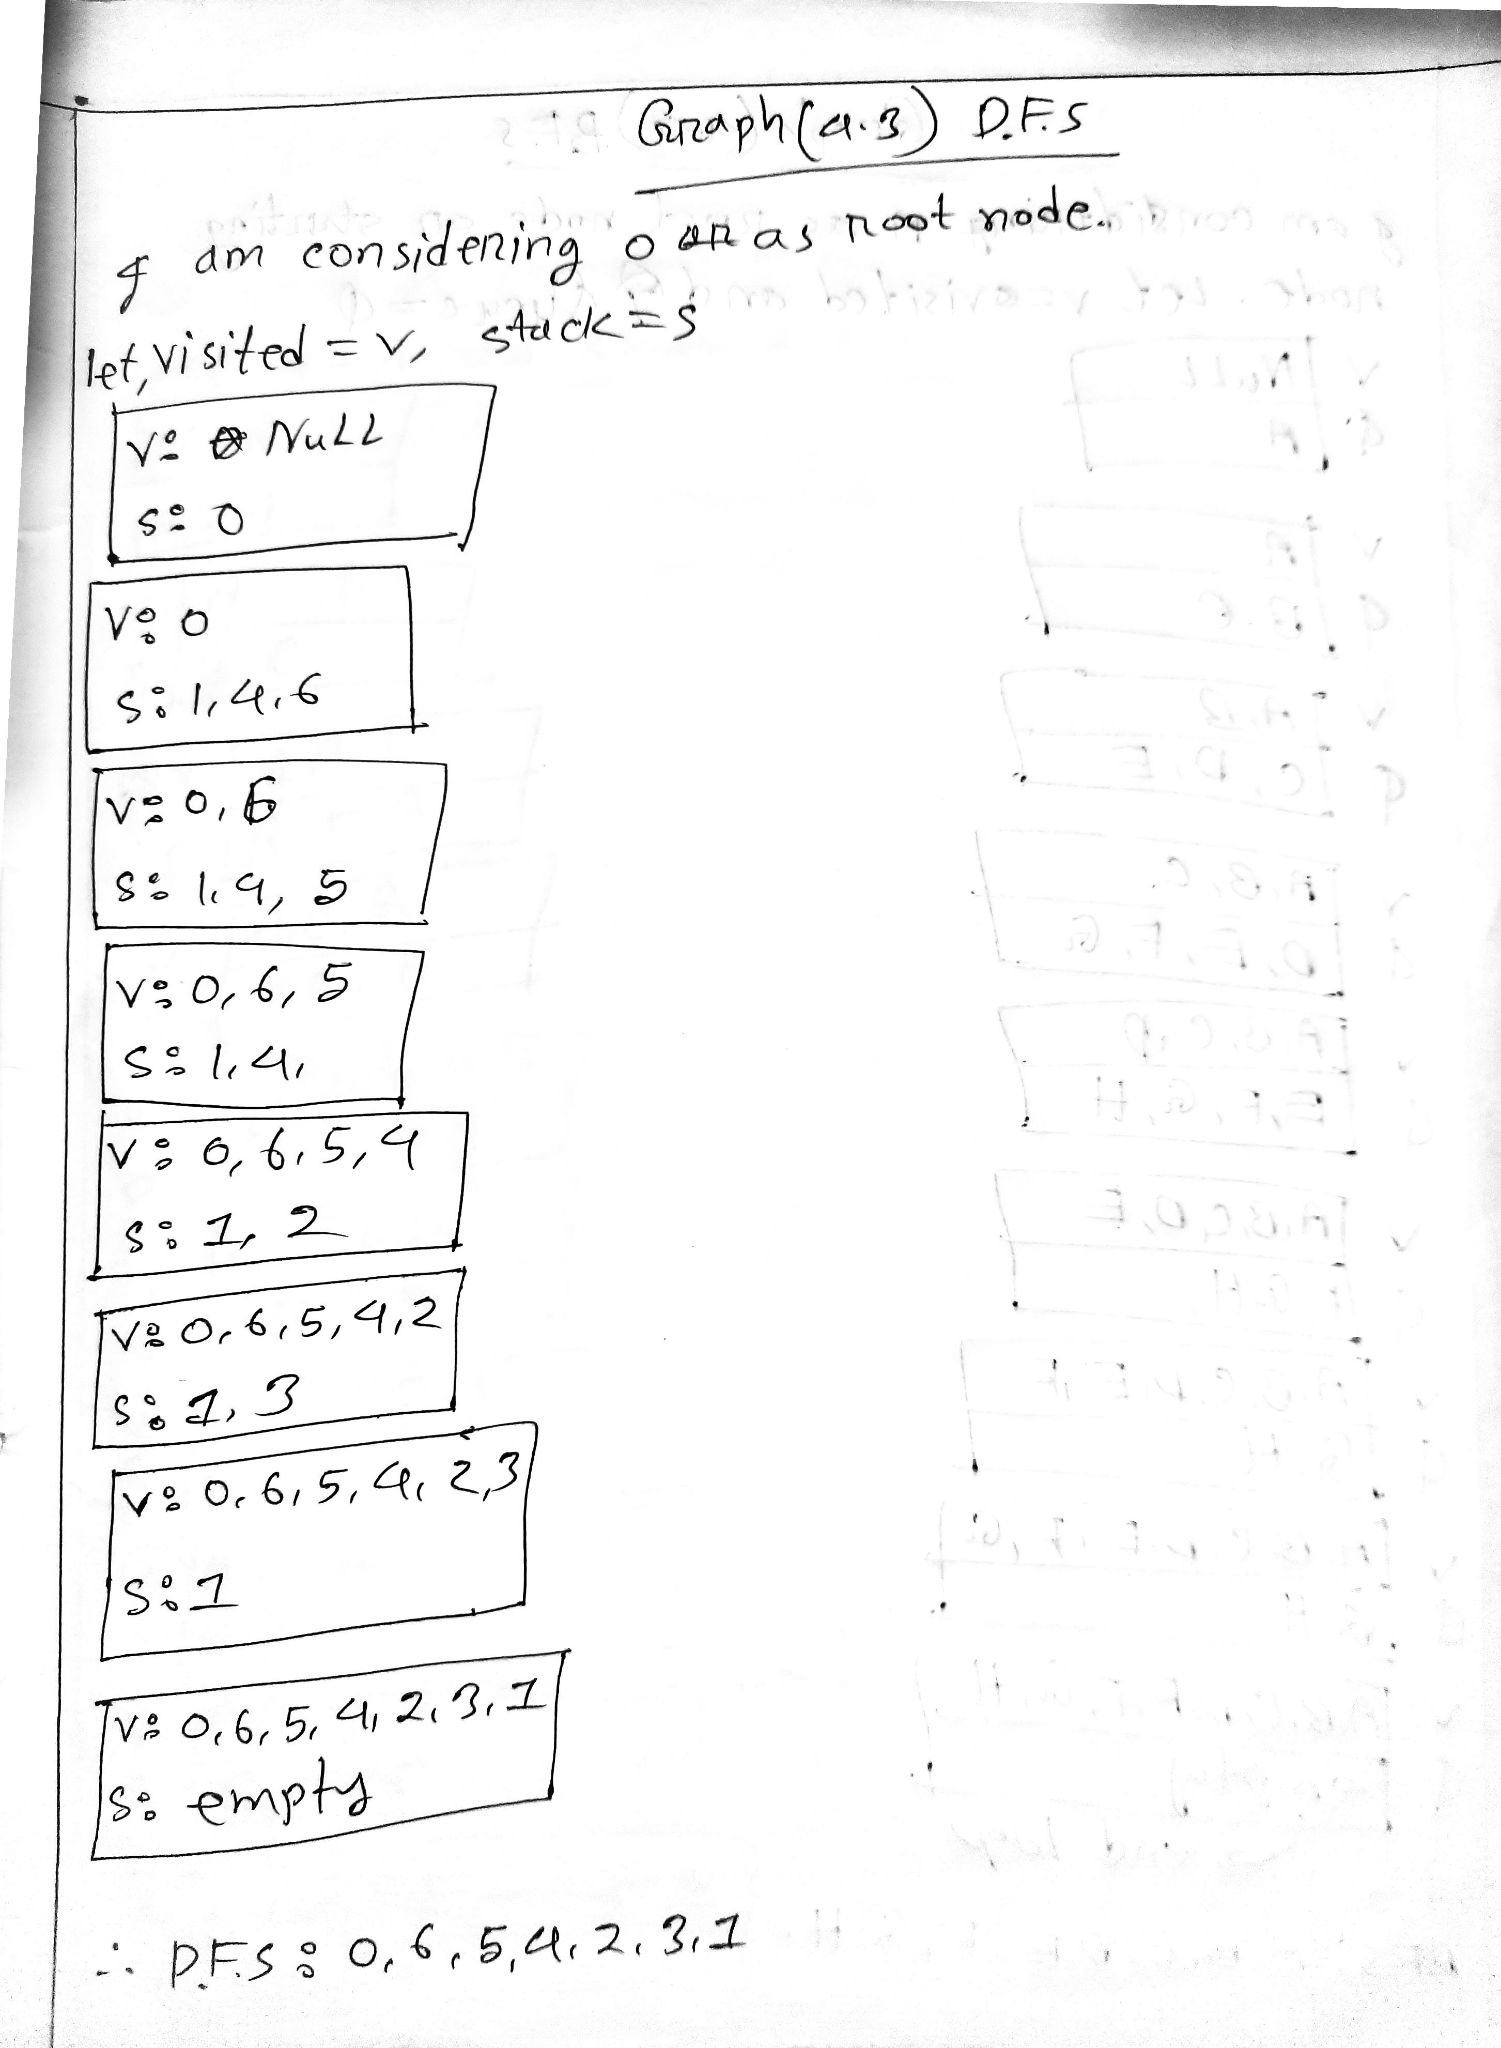 Graph(4.3) D.F.S
I am considering 0 as root node.
let, visited = v, stack = s
V: NULL
S: 0
V: 0
S: 1,4,6
V: 0,6
S: 1,4,5
V: 0,6,5
S: 1,4,
V: 0,6,5,4
S: 1,2
V: 0,6,5,4,2
S: 1,3
V: 0,6,5,4,2,3
S: 1
V: 0,6,5,4,2,3,1
S: empty
∴ D.F.S: 0,6,5,4,2,3,1